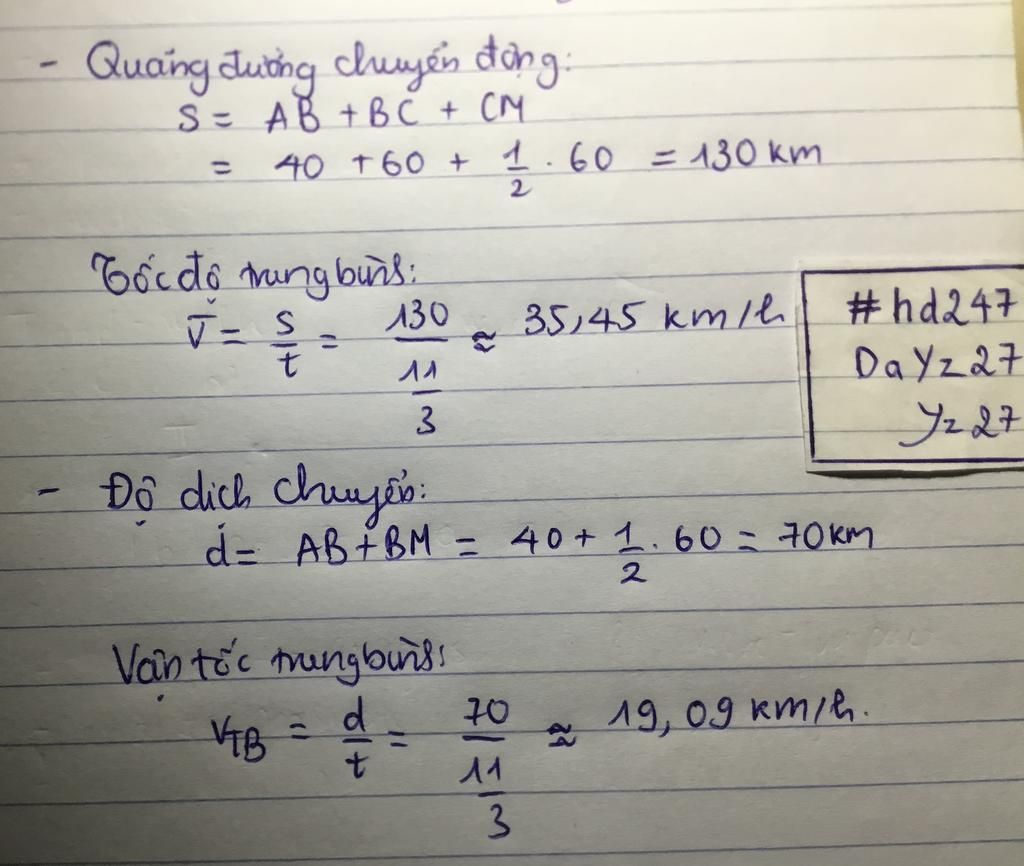 - Quãng đường chuyển động:
S = AB + BC + CM
= 40 + 60 + 1/2 . 60 = 130 km
Tốc độ trung bình:
v̄ = s/t = 130/(11/3) ≈ 35,45 km/h
#hd247
DaYz27
Yz27
- Độ dịch chuyển:
d = AB + BM = 40 + 1/2 . 60 = 70 km
Vận tốc trung bình:
vTB = d/t = 70/(11/3) ≈ 19,09 km/h.